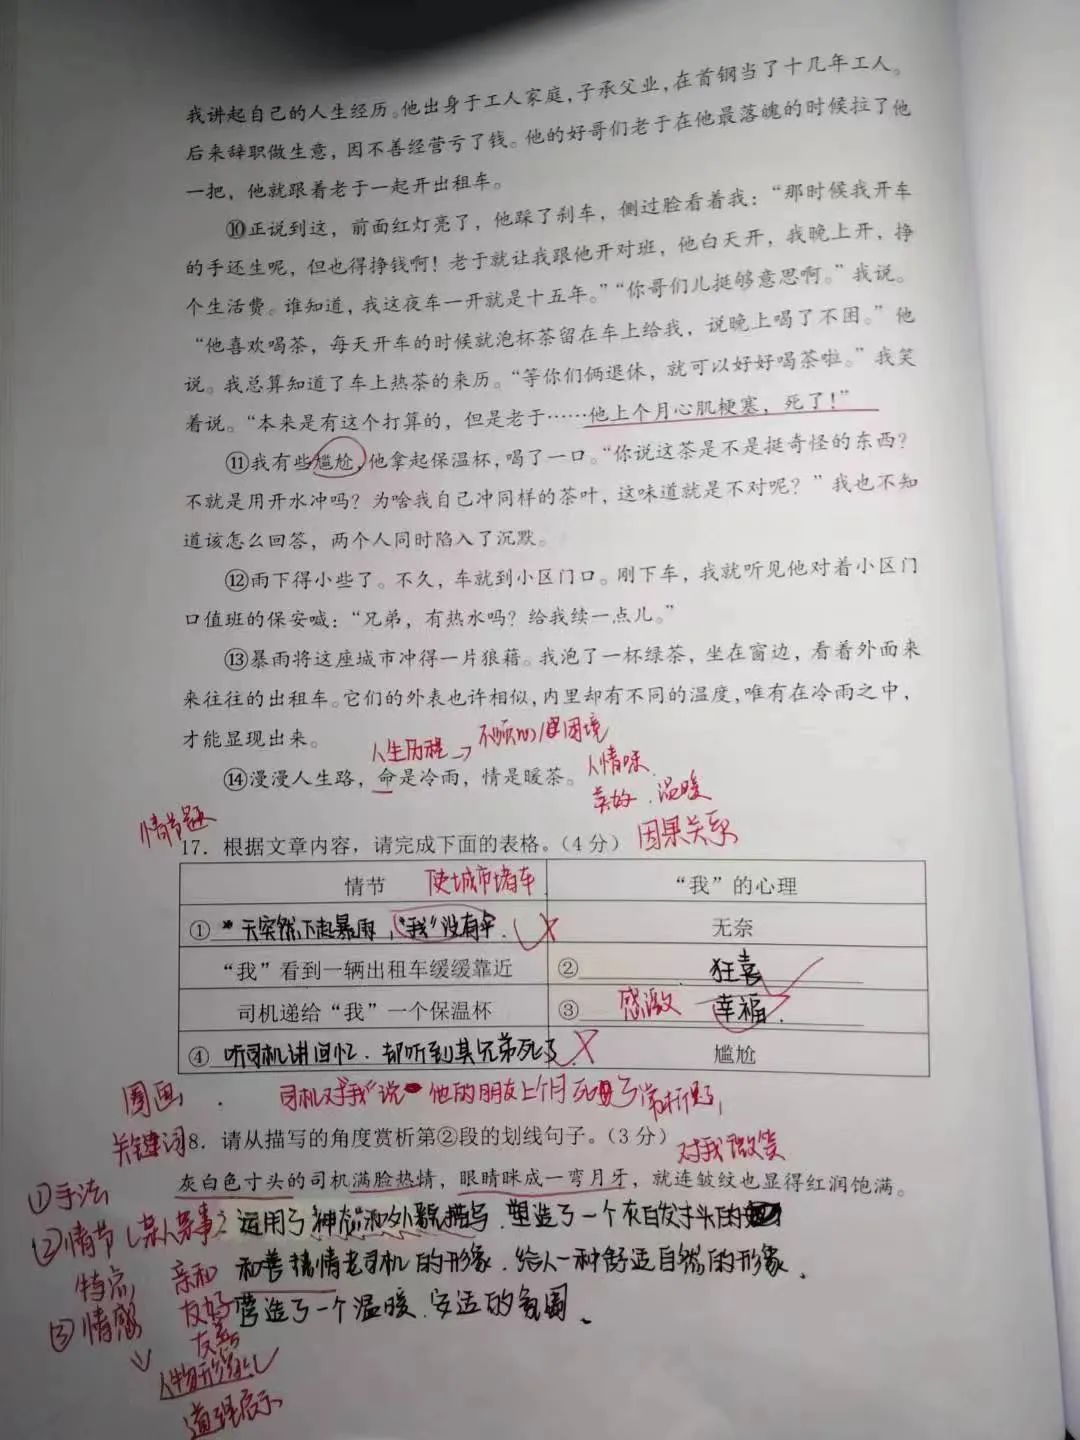 我讲起自己的人生经历。他出身于工人家庭，子承父业，在首钢当了十几年工人。
后来辞职做生意，因不善经营亏了钱。他的好哥们老于在他最落魄的时候拉了他
一把，他就跟着老于一起开出租车。
⑩正说到这，前面红灯亮了，他踩了刹车，侧过脸看着我：“那时候我开车
的手还生呢，但也得挣钱啊！老于就让我跟他开对班，他白天开，我晚上开，挣
个生活费。谁知道，我这夜车一开就是十五年。”“你哥们儿挺够意思啊。”我说。
“他喜欢喝茶，每天开车的时候就泡杯茶留在车上给我，说晚上喝了不困。”他
说。我总算知道了车上热茶的来历。“等你们俩退休，就可以好好喝茶啦。”我笑
着说。“本来是有这个打算的，但是老于……他上个月心肌梗塞，死了！”
⑪我有些尴尬，他拿起保温杯，喝了一口。“你说这茶是不是挺奇怪的东西？
不就是用开水冲吗？为啥我自己冲同样的茶叶，这味道就是不对呢？”我也不知
道该怎么回答，两个人同时陷入了沉默。
⑫雨下得小些了。不久，车就到小区门口。刚下车，我就听见他对着小区门
口值班的保安喊：“兄弟，有热水吗？给我续一点儿。”
⑬暴雨将这座城市冲得一片狼藉。我泡了一杯绿茶，坐在窗边，看着外面来
来往往的出租车。它们的外表也许相似，内里却有不同的温度，唯有在冷雨之中，
才能显现出来。
人生历程→不顺心/困境
⑭漫漫人生路，命是冷雨，情是暖茶。
人情味
美好、温暖
情节题
17. 根据文章内容，请完成下面的表格。（4分）
因果关系
情节 使城市堵车 “我”的心理
① 天突然下起暴雨，“我”没有伞. 无奈
“我”看到一辆出租车缓缓靠近 ② 狂喜
司机递给“我”一个保温杯 ③ 感激 幸福.
④ 听司机讲回忆、却听到其兄弟死了 尴尬
司机对“我”说 他的朋友上个月死了 赏析题
圈画
关键词
8. 请从描写的角度赏析第②段的划线句子。（3分）
对我微笑
灰白色寸头的司机满脸热情，眼睛眯成一弯月牙，就连皱纹也显得红润饱满。
①手法
②情节（某人某事）
特点
③情感
人物形象
道理启示
亲和
友好
友善
运用了神态和外貌描写，塑造了一个灰白发寸头的
和善热情老司机的形象，给人一种舒适自然的形象，
营造了一个温暖、安适的氛围。